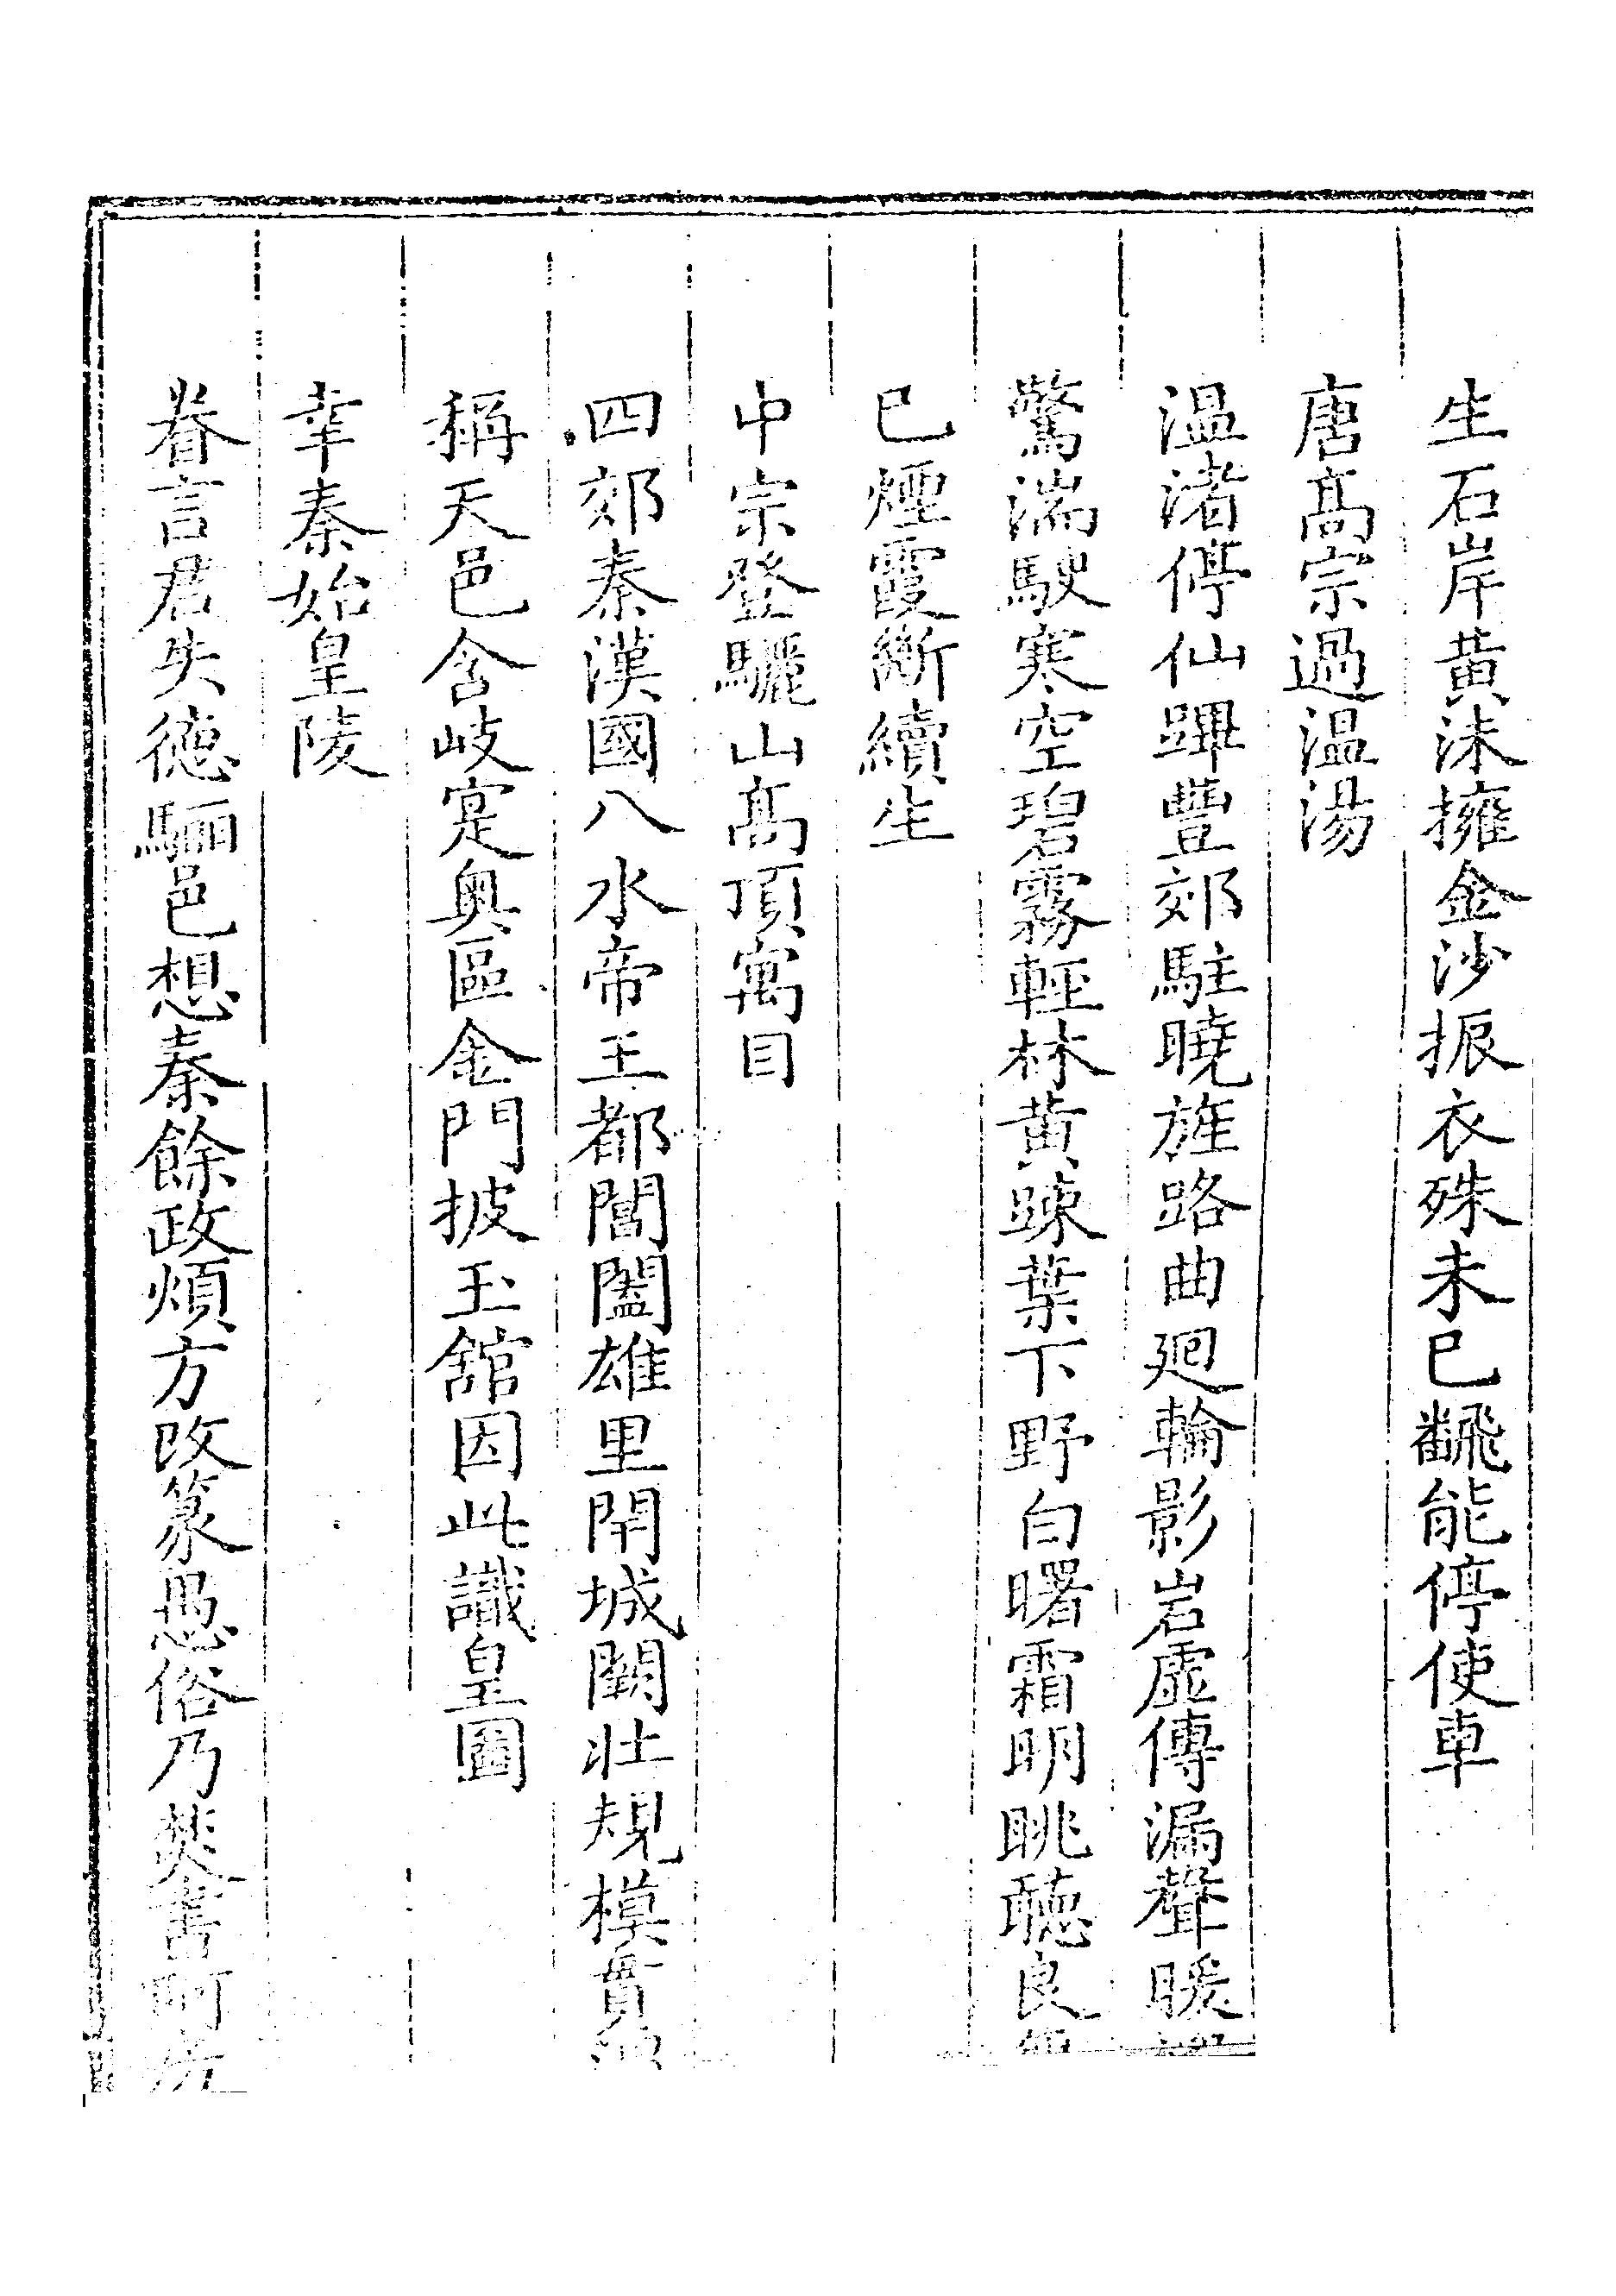 生石岸黄沬擁金沙振衣殊未已飜能停使車
唐髙宗過温湯
温渚停仙蹕豐郊駐曉旌路曲廻輪影岩虚傳漏聲暖
驚湍駛寒空碧霧輕林黄踈葉下野白曙霜明眺聽良
已煙霞斷續生
中宗登驪山髙頂寓目
四郊秦漢國八水帝王都閶闔雄里閈城闕壯規模貫
稱天邑含岐寔奥區金門披玉舘因此識皇圖
幸秦始皇陵
眷言君失德驪邑想秦餘政煩方改篆愚俗乃焚書阿房